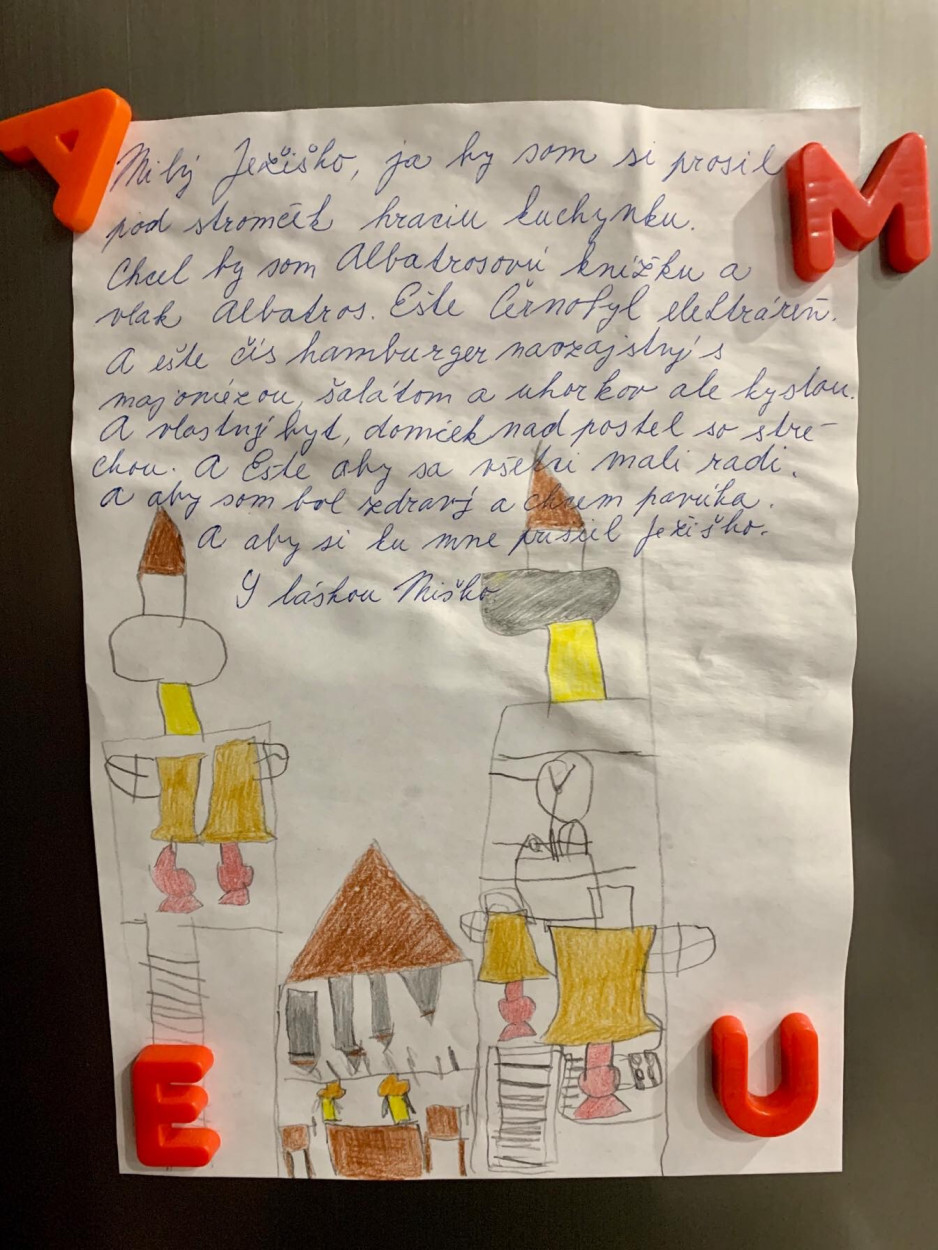 A
M
Milý Ježiško, ja by som si prosil
pod stromček hraciu kuchynku.
Chcel by som Albatrosovú knížku a
vlak Albatros. Ešte Černobyl elektráreň.
A ešte čís hamburger naozajstný s
majonézou, šalátom a uhorkov ale kyslou.
A vlastný byt, domček nad postel so stre-
chou. A Ešte aby sa všetci mali radi.
A aby som bol zdravý a chcem pavúka.
A aby si ku mne pustil Ježiško.
S láskou Miško
E
U